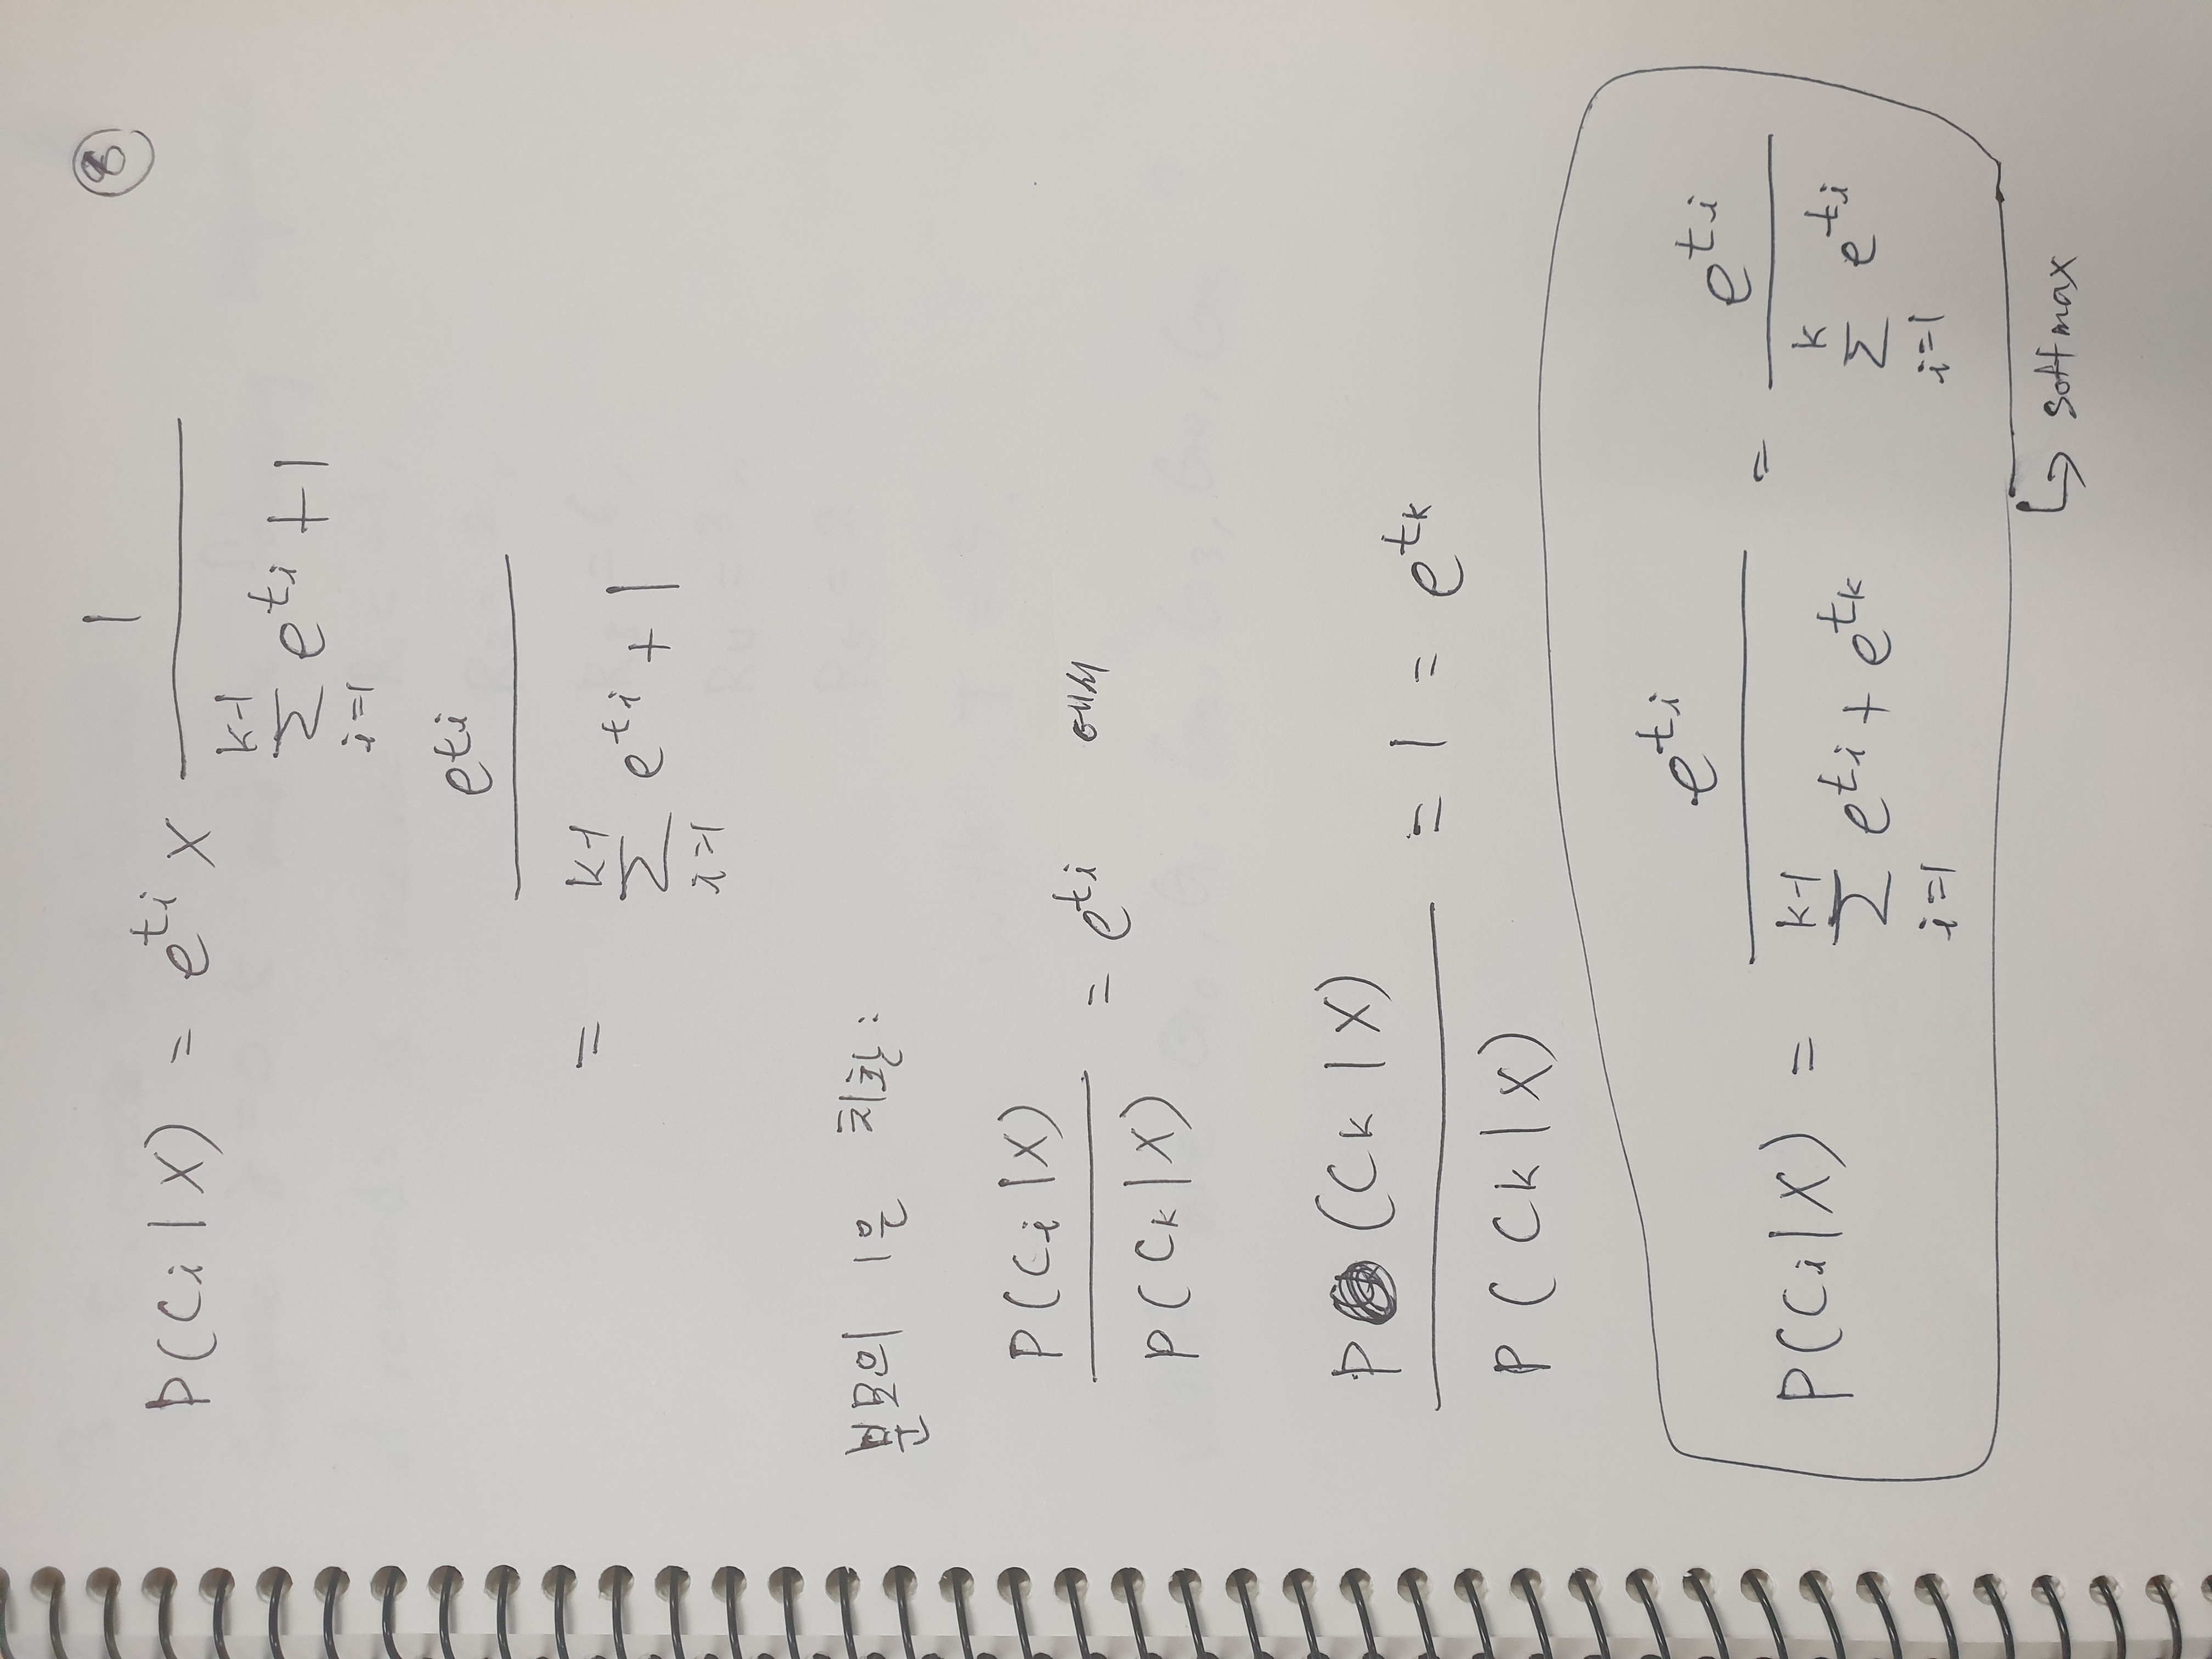 ⑧
P(Ci|X) = e^{ti} × \frac{1}{\sum_{i=1}^{k-1} e^{ti} + 1}
= \frac{e^{ti}}{\sum_{i=1}^{k-1} e^{ti} + 1}
분모의 1은 치환:
\frac{P(Ci|X)}{P(Ck|X)} = e^{ti} 에서
\frac{P(Ck|X)}{P(Ck|X)} = 1 = e^{tk}
P(Ci|X) = \frac{e^{ti}}{\sum_{i=1}^{k-1} e^{ti} + e^{tk}} = \frac{e^{ti}}{\sum_{i=1}^{k} e^{ti}}
↳ softmax